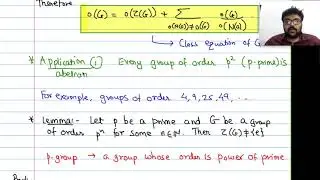 Therefore
o(G) = o(Z(G)) + Σ o(G)/o(N(a))
o(N(a)) ≠ o(G)
↳ Class equation of G
* Application ①: Every group of order p² (p-prime) is
abelian
For example, groups of order 4, 9, 25, 49, ...
* Lemma:- Let p be a prime and G be a group
of order pⁿ for some n∈N. Then Z(G) ≠ {e}
p-group → a group whose order is power of prime